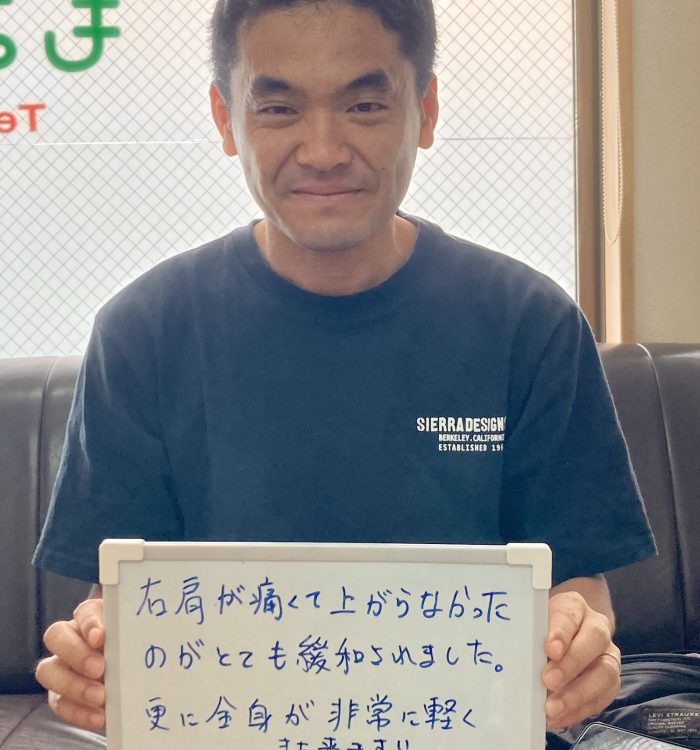 SIERRA DESIGN
BERKELEY.CALIFORN
ESTABLISHED 19
右肩が痛くて上がらなかった
のがとても緩和されました。
更に全身が非常に軽く
また来ます!!
LEVI STRAUSS